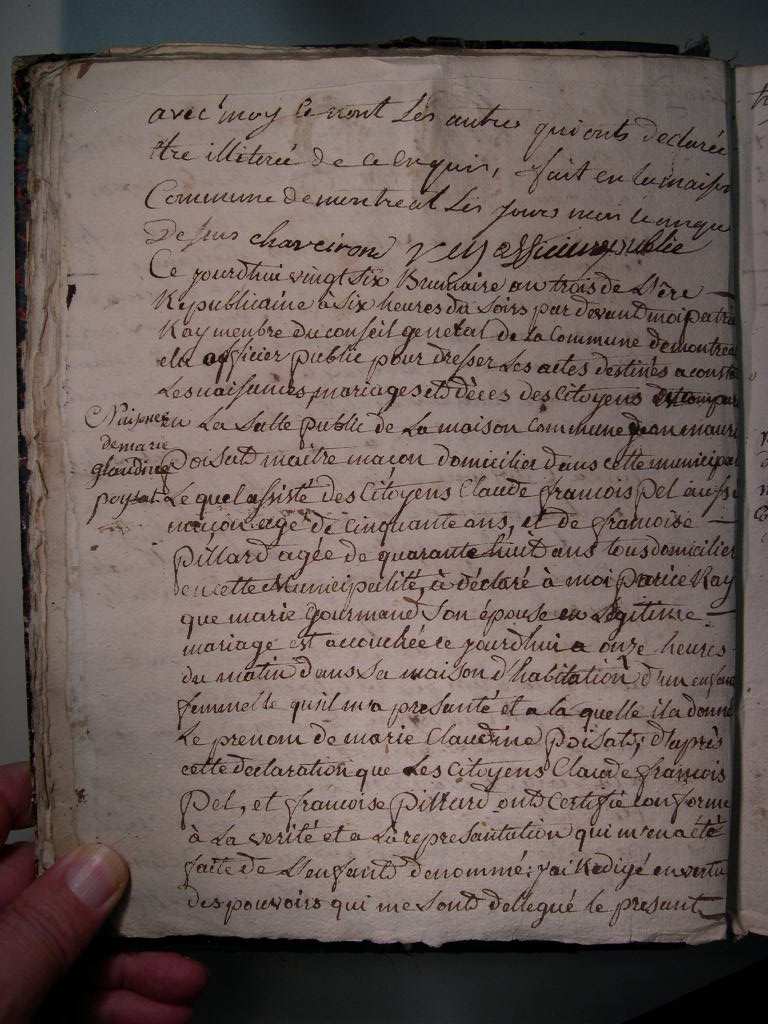 avec moy ce nont Les autres qui onts declarée
être illiterée de ce enquir, fait en la maison
Commune de montreal Les jours mois et anque
Dessus chaveirond Rey officier public
Ce jourdhui vingt six Brumaire an trois de L'ère
Republicaine à six heures du Soirs par devant moi patri
Ray menbre du conseil general de la Commune de montrea
ela officier public pour dresser Les actes destinés a consta
Les naisances, mariages et dèces des Citoyens est compar
en La Salle public de La maison Commune jean maurі
Poisat maitre maçon domicilier dans cette municipal
Le quel assisté des Citoyens Claude francois Pel aussi
maçon agé de cinquante ans, et de francoise
Pillard agée de quarante huit ans tous domicilier
en cette Municipalité, à déclaré à moi patrice Ray
que marie Gourmand Son épouse en Legitime
mariage est accouchée ce jourdhui a onze heures
du matin dans Sa maison d'habitation d'un enfant
femmelle qu'il m'a presanté et a la quelle il a donné
Le prenom de marie Claudine Poisat; d'après
cette declaration que Les Citoyens Claude francois
Pel, et francoise Pillard onts Certifié conforme
à La verité et a La represantation qui m'en a été
faite de L'enfant denommé; j'ai Redigé en vertu
des pouvoirs qui me Sonts dellegué le presant
Naisance
de marie
glaudine
poysat.